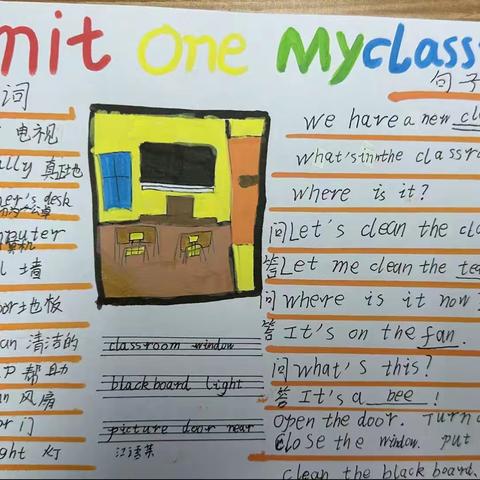 nit One My class
词
句子
电视
ally 真正地
her's desk
mputer
墙
or 地板
an 清洁的
lp 帮助
an 风扇
or 门
ght 灯
classroom window
blackboard light
picture door near
We have a new cl
what's in the classro
where is it?
问 Let's clean the cla
答 Let me clean the tea
问 where is it now?
答 It's on the fan.
问 what's this?
答 It's a bee!
open the door. Turn o
Close the window. put
clean the blackboard.